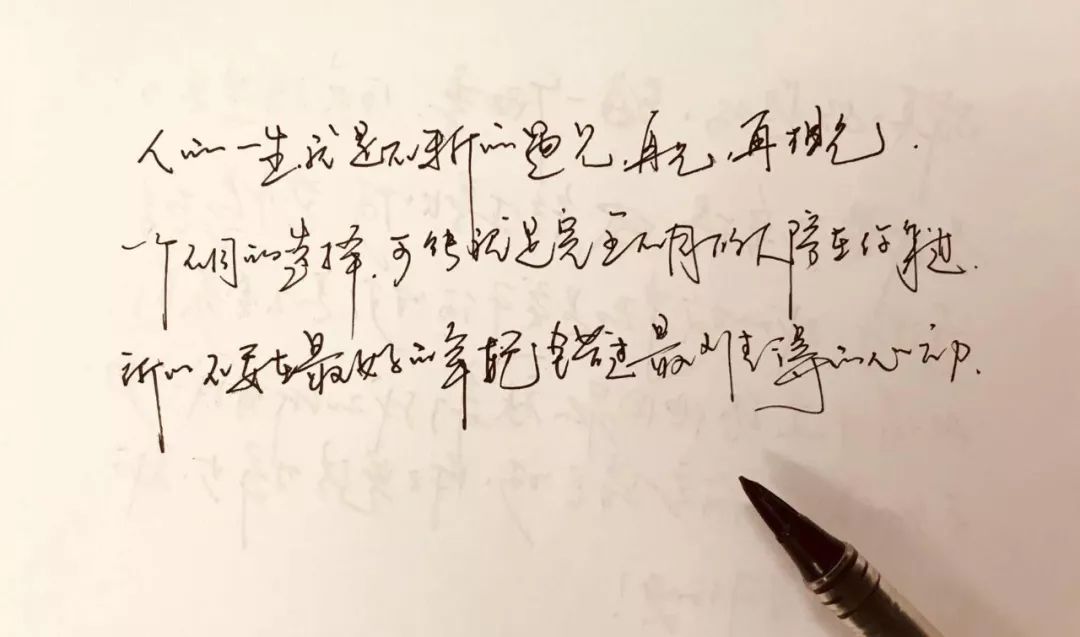 人的一生,就是不断的遇见,再见,再相见.
一个不同的选择,可能就是完全不同的人陪在你身边.
所以不要在最好的年纪错过最难得的心动.